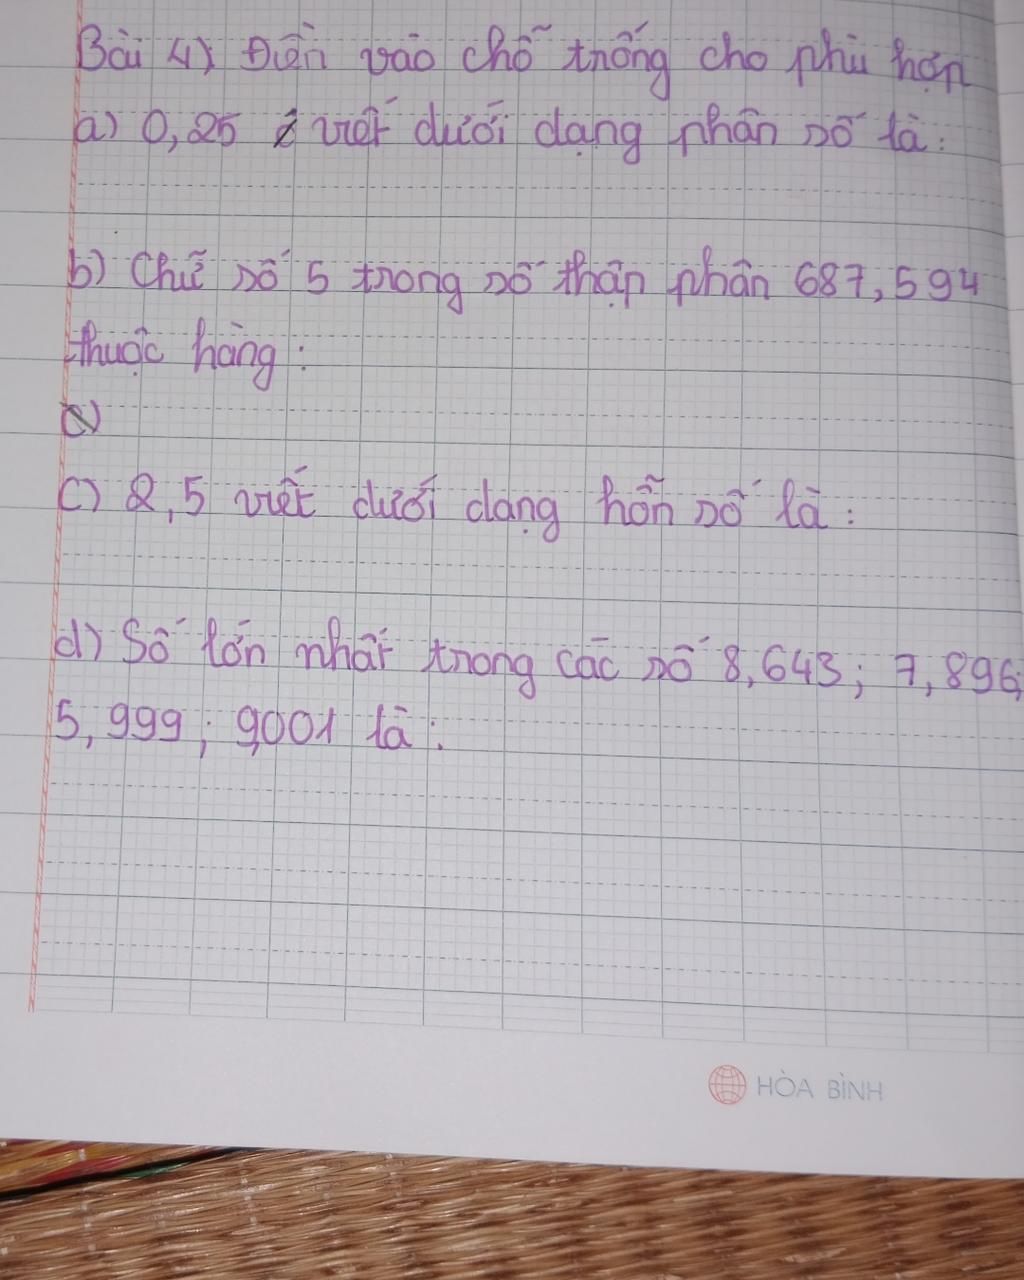 Bài 4) Điền vào chỗ trống cho phù hợp
a) 0,25 viết dưới dạng phân số là:
b) Chữ số 5 trong số thập phân 687,594
thuộc hàng:
c) 2,5 viết dưới dạng hỗn số là:
d) Số lớn nhất trong các số 8,643; 7,896;
5,999; 9,001 là:
HÒA BÌNH